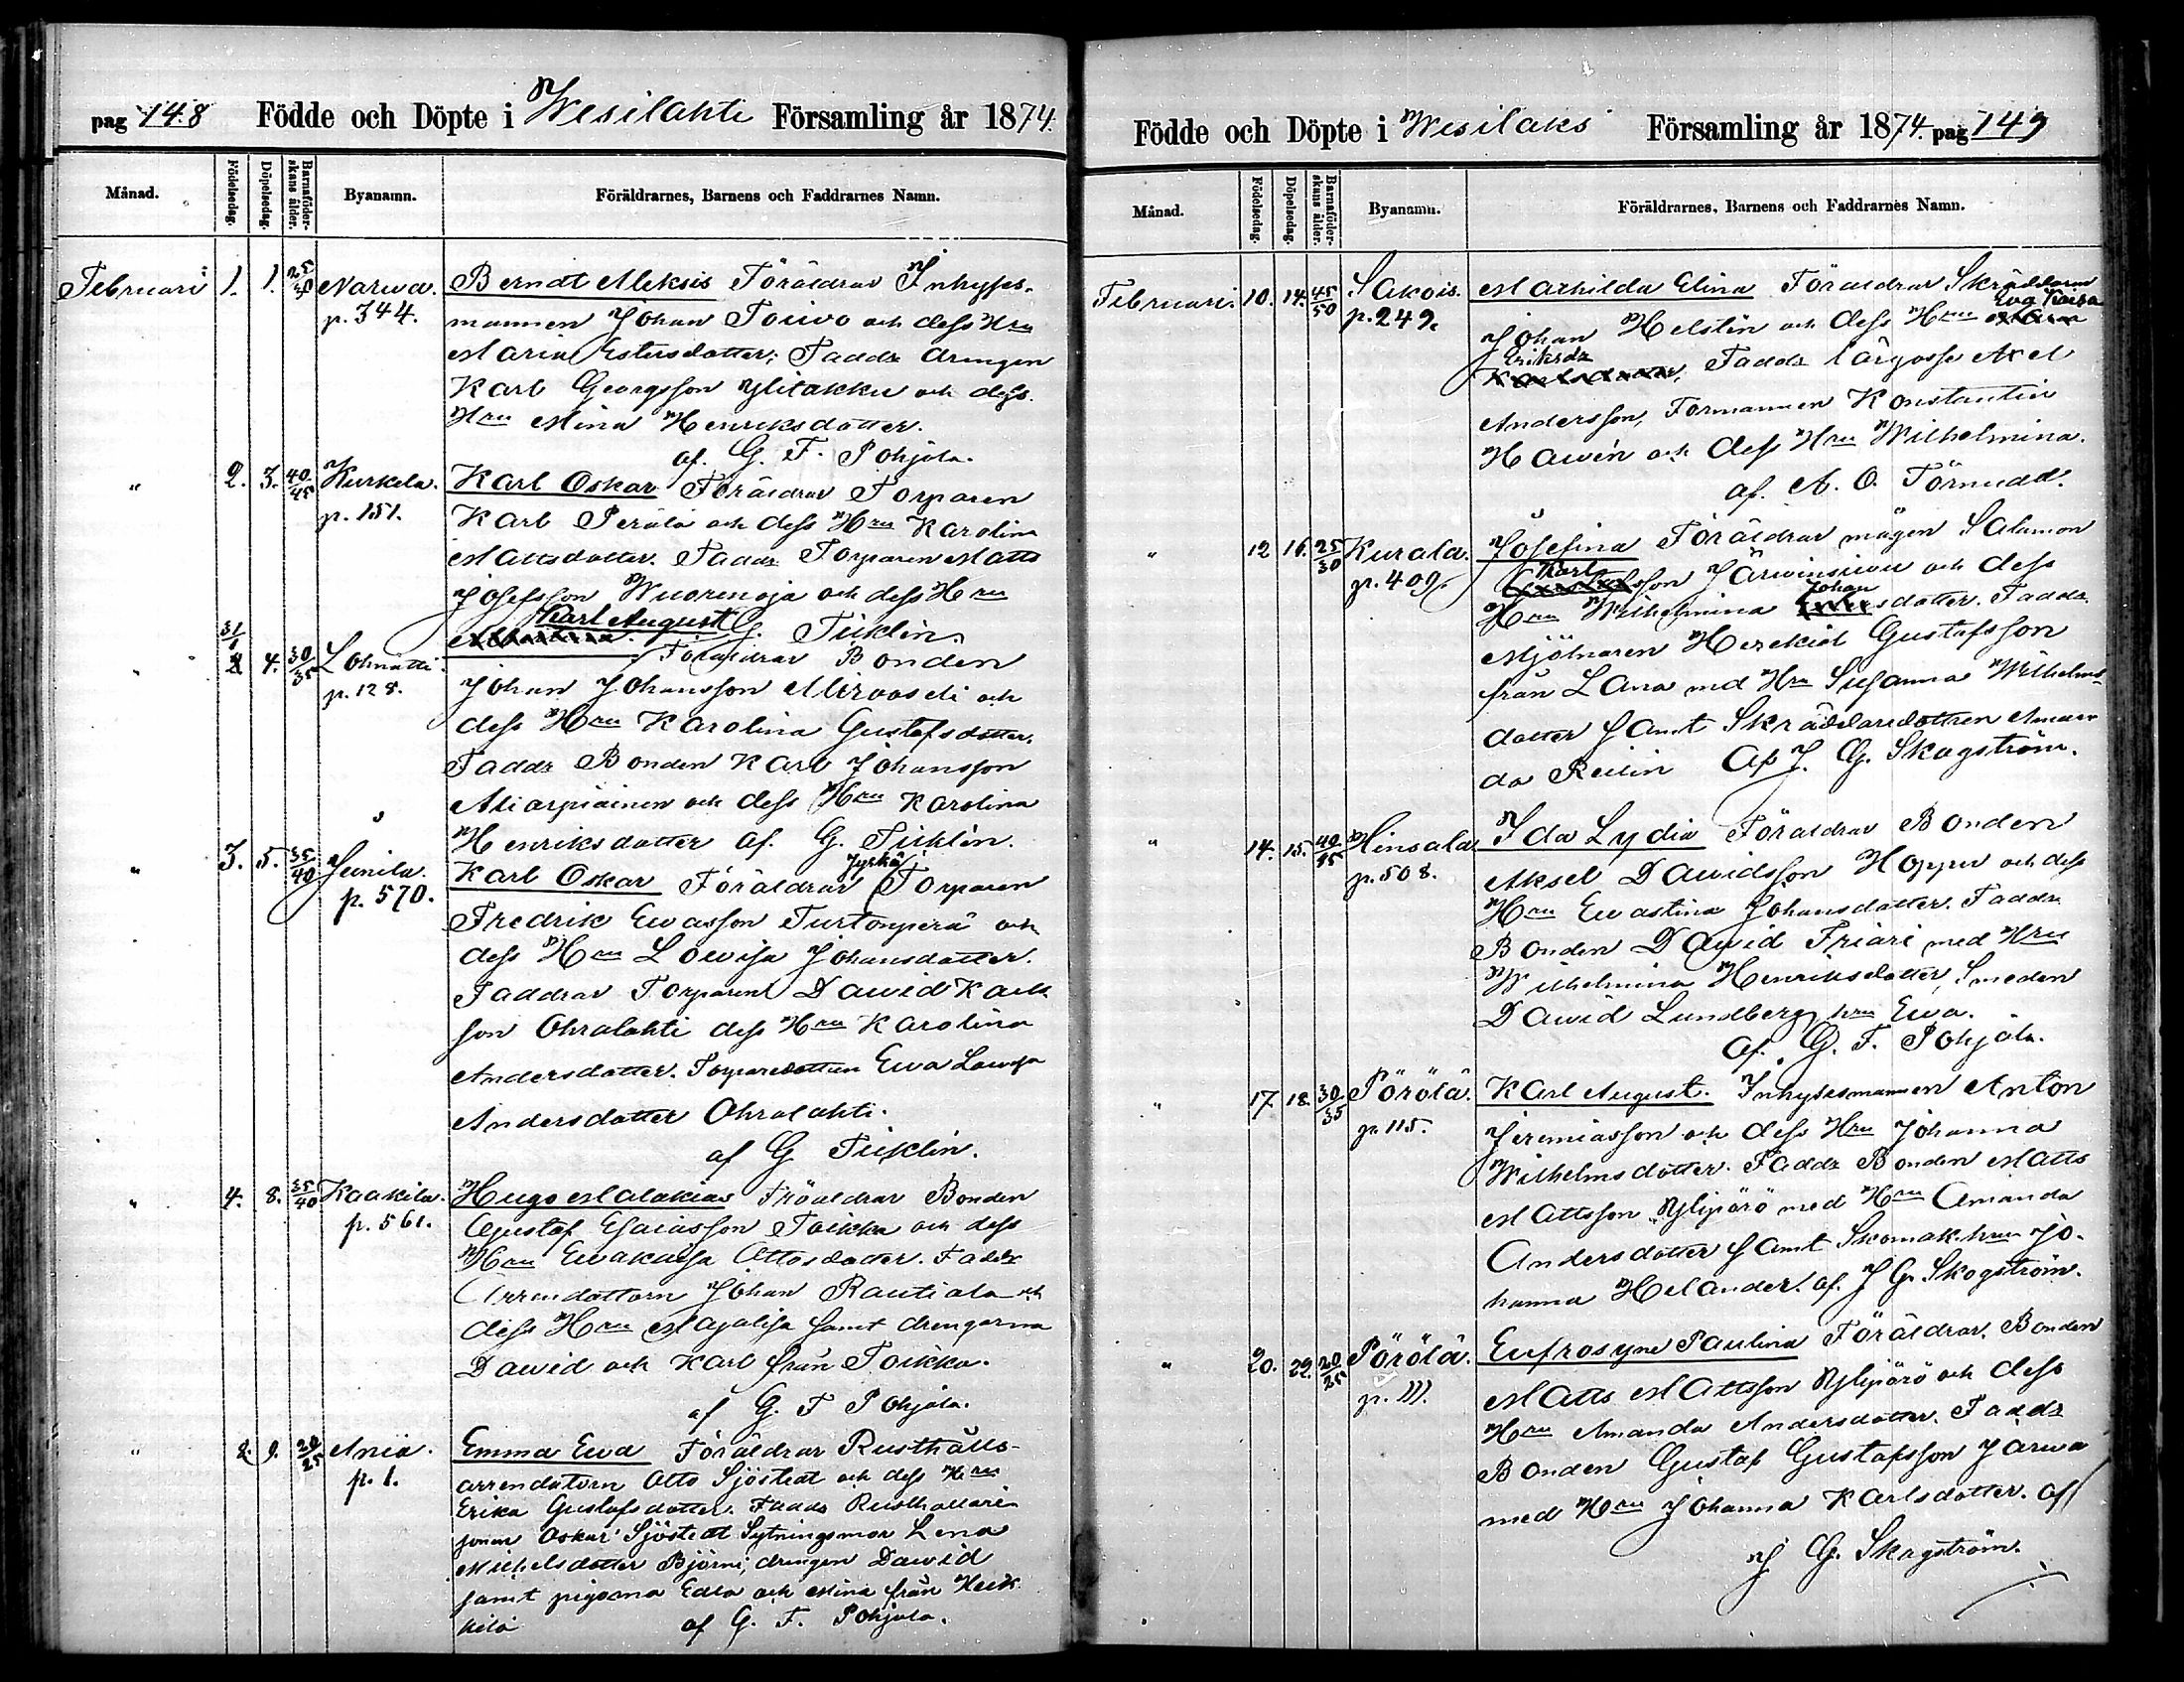 pag 148 Födde och Döpte i Wesilahti Församling år 1874.
Månad. Födelsedag. Döpelsedag. Barnaföderskans ålder. Byanamn. Föräldrarnes, Barnens och Faddrarnes Namn.
Februari 1. 1. 25/30 Narwa. Berndt Aleksis Föräldrar Inhyses-
p. 344. mannen Johan Toiwo och dess Hru
Maria Estersdotter; Faddr drengen
Karl Georgsson Ylitakku och dess
Hru Mina Henriksdotter.
af. G. F. Pohjola.
" 2. 3. 40/45 Kurkela. Karl Oskar Föräldrar Torparen
p. 151. Karl Perälä och dess Hru Karolina
Mattsdotter. Faddr Torparen Matts
Josefsson Wuorenoja och dess Hru
G. Tiklin.
31/1 Karl August
" 2 4. 30/35 Lohnatti. Föräldrar Bonden
p. 128. Johan Johansson och
dess Hru Karolina Gustafsdotter.
Faddr Bonden Karl Johansson
Aliarpiainen och dess Hru Karolina
Henriksdotter af. G. Tiklin.
Jyrkä
" 3. 5. 35/40 Junila. Karl Oskar Föräldrar Torparen
p. 570. Fredrik Ewasson Turtonperä och
dess Hru Lowisa Johansdotter.
Faddrar Torparen Dawid Karls
son Ohralahti dess Hru Karolina
Andersdotter. Torparedottren Ewa Lowisa
Andersdotter Ohralahti.
af G Tiklin.
" 4. 8. 35/40 Kaakila. Hugo Malakias Föräldrar Bonden
p. 561. Gustaf Esaiasson Toikka och dess
Hru Ewakaisa Ottosdotter. Faddr
Arrendatorn Johan Rautiala och
dess Hru Majalisa samt drengarna
Dawid och Karl från Toikka.
af G. F Pohjola.
" 8. 9. 20/25 Ania. Emma Ewa Föräldrar Rusthålls-
p. 1. arrendatorn Otto Sjöstedt och dess Hru
Erika Gustafsdotter. Faddr Rusthållare
sonen Oskar Sjöstedt Sytningsmor Lena
Michelsdotter Björni, drengen Dawid
samt pigorna Edla och Mina från Heik
kilä af G. F. Pohjola.
Födde och Döpte i Wesilaks Församling år 1874. pag 149
Månad. Födelsedag. Döpelsedag. Barnaföderskans ålder. Byanamn. Föräldrarnes, Barnens och Faddrarnes Namn.
Februari. 10. 14. 45/50 Sakois. Mathilda Elina Föräldrar Skräddaren
p. 249. Johan Helstin och dess Hru Eva Kaisa
Eriksdr Faddr lärgosse Axel
Andersson, Formannen Konstantin
Hawén och dess Hru Wilhelmina.
af. A. O. Törnudd.
" 12 16. 25/30 Kurala. Josefina Föräldrar mågen Salamon
p. 409. Karlsson Järwinsiwu och dess
Hru Wilhelmina Johansdotter. Faddr.
Mjölnaren Hezekiel Gustafsson
från Lana med Hru Susanna Wilhelms-
dotter samt Skräddaredottren Aman
da Reilin Af J. G. Skogström.
" 14. 15. 40/45 Hinsala Ida Lydia Föräldrar Bonden
p. 508. Aksel Dawidsson Hoppu och dess
Hru Ewastina Johansdotter. Faddr
Bonden Dawid Friari med Hru
Wilhelmina Henriksdotter, Smeden
Dawid Lundberg hru Ewa.
af. G. F. Pohjola.
" 17. 18. 30/35 Pörölä. Karl August. Inhysesmannen Anton
p. 115. Jeremiasson och dess Hru Johanna
Wilhelmsdotter. Faddr Bonden Matts
Mattsson Ylipörö med Hru Amanda
Andersdotter samt Skomak. hru Jo-
hanna Helander. af. J G. Skogström.
" 20. 22. 20/25 Pörölä. Eufrosyne Paulina Föräldrar. Bonden
p. 111. Matts Mattsson Ylipörö och dess
Hru Amanda Andersdotter. Faddr
Bonden Gustaf Gustafsson Jarwa
med Hru Johanna Karlsdotter. af
J G. Skogström.